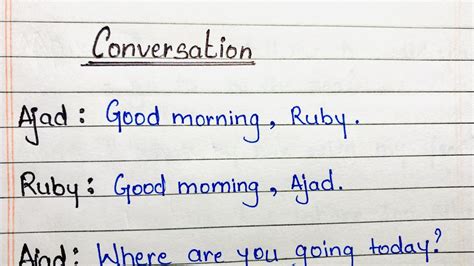 Conversation
Ajad : Good morning, Ruby.
Ruby : Good morning, Ajad.
Ajad : Where are you going today?